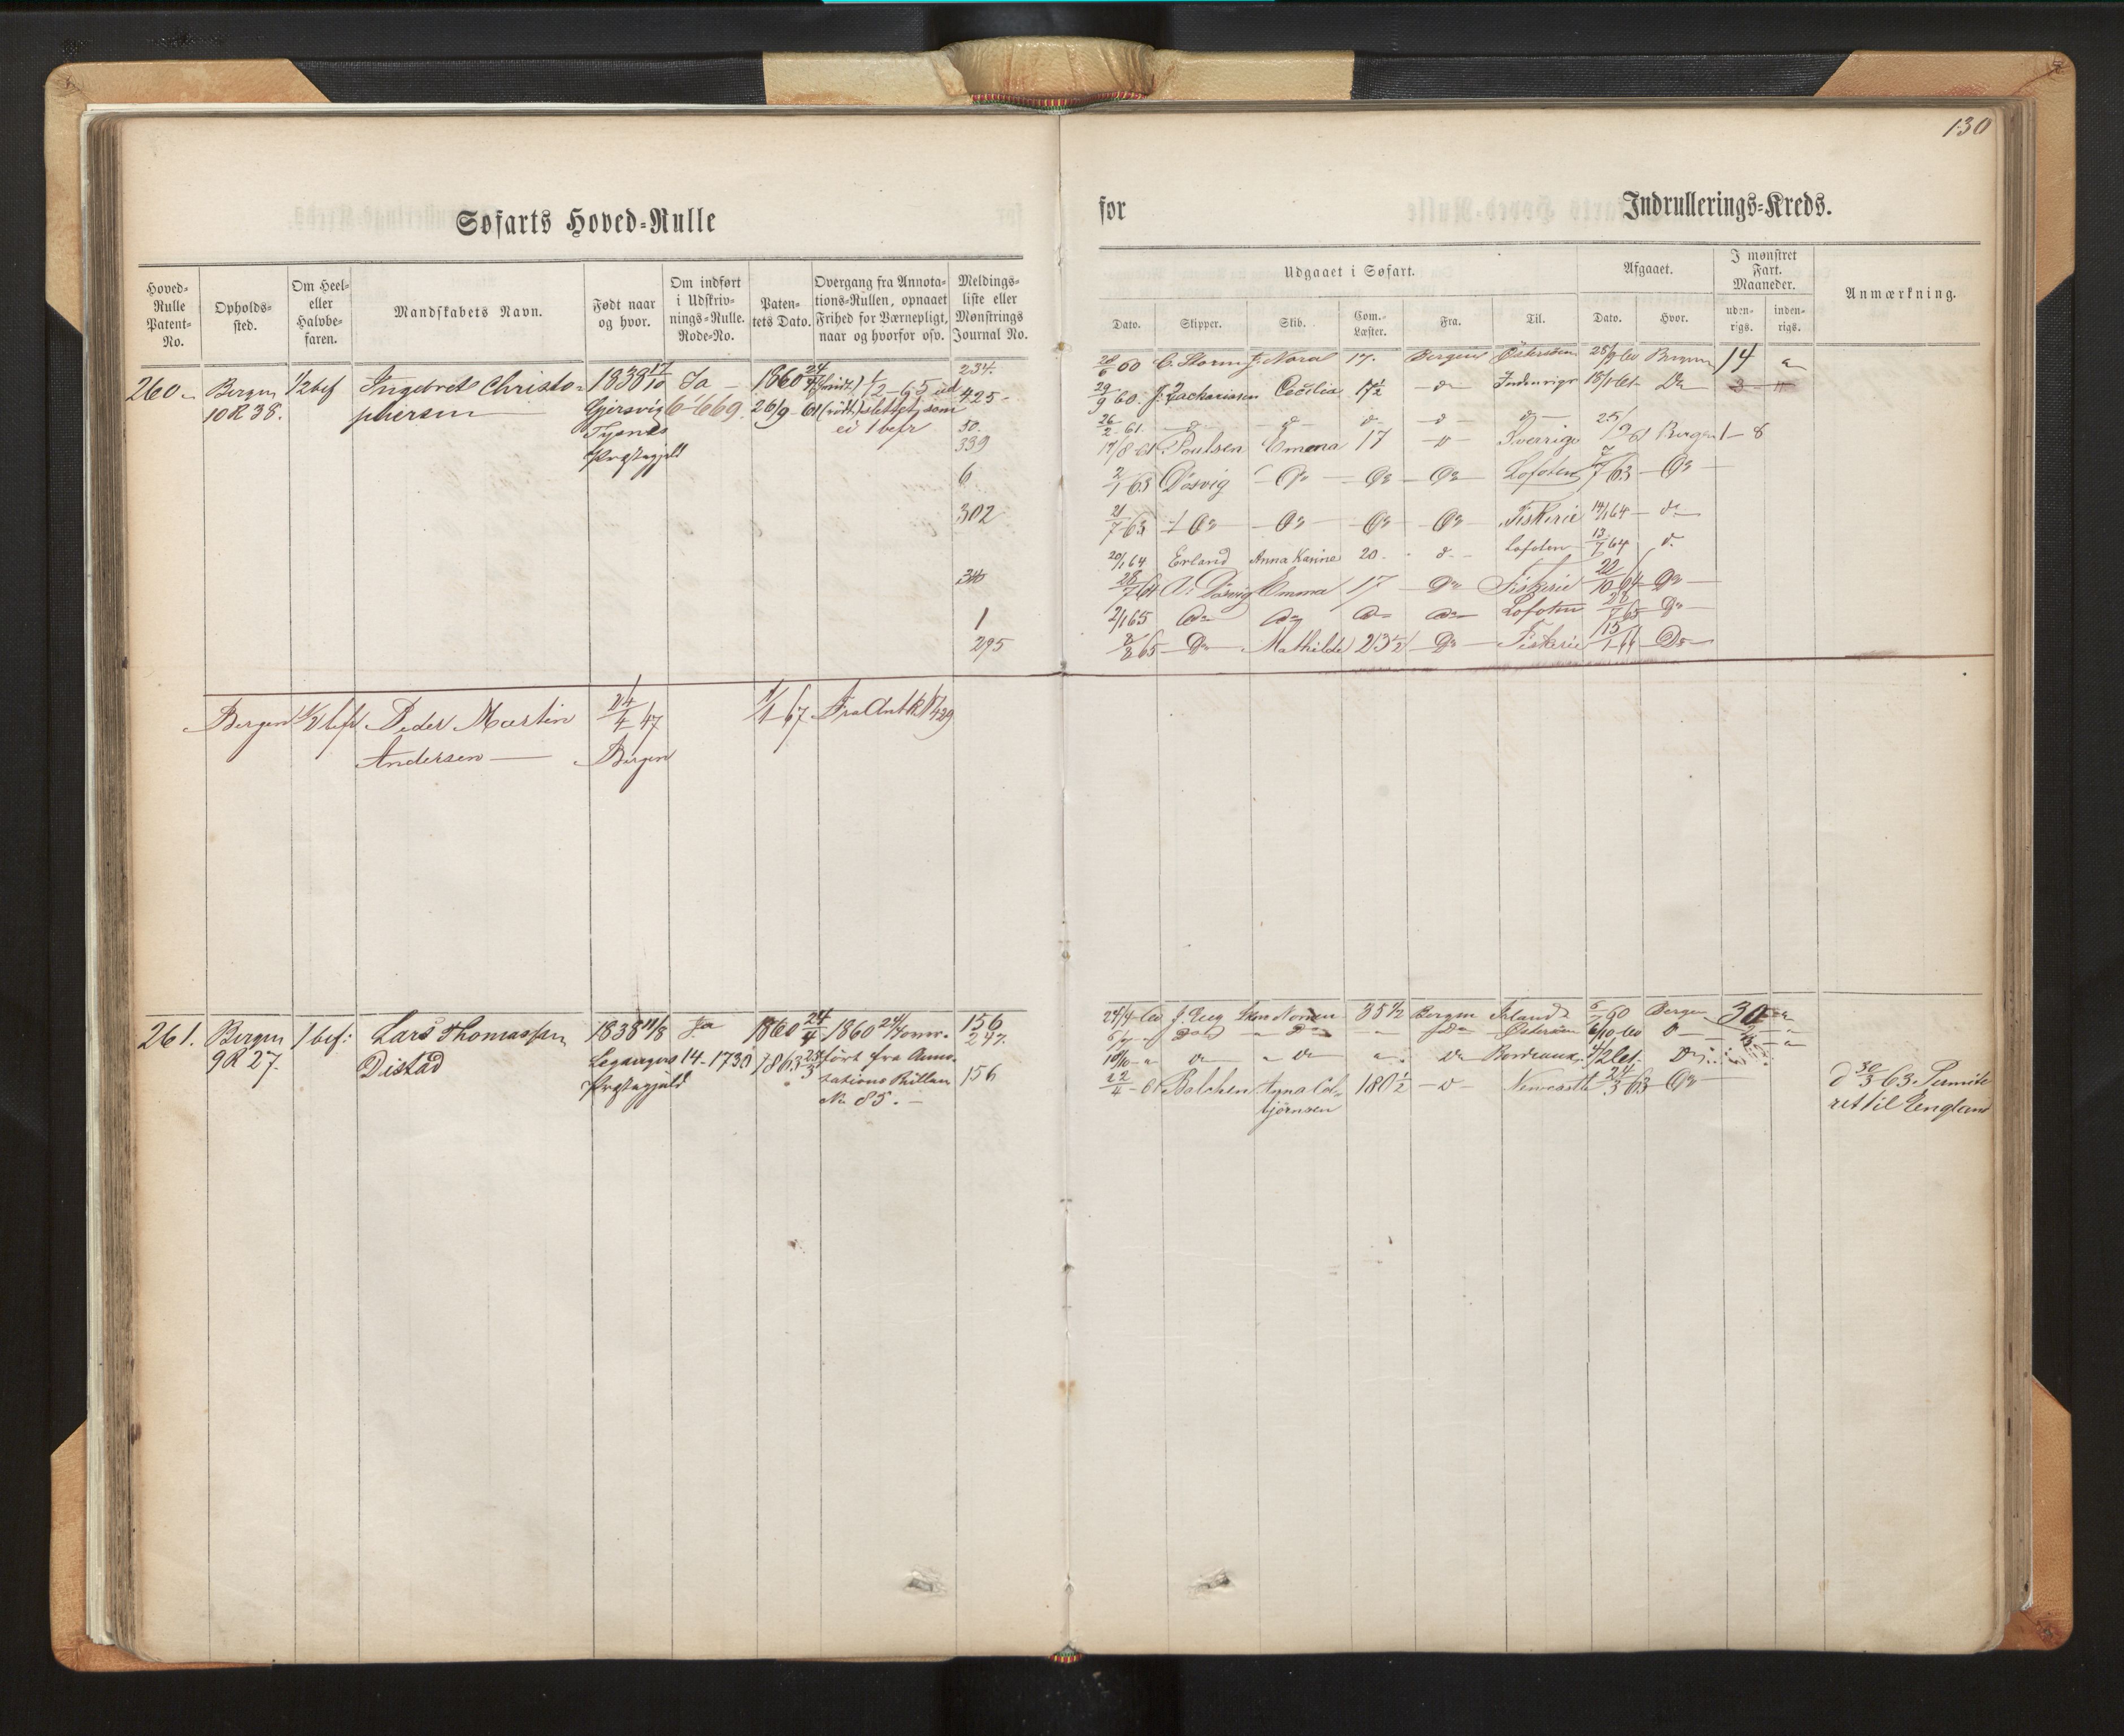 130
Søfarts Hoved-Rulle
for Indrullerings-Kreds.
Hoved-Rulle Patent-No.
Opholds-sted.
Om Heel- eller Halvbe-faren.
Mandskabets Navn.
Født naar og hvor.
Om indført i Udskriv-nings-Rulle. Rode-No.
Paten-tets Dato.
Overgang fra Annota-tions-Rullen, opnaaet Frihed for Værnepligt, naar og hvorfor osv.
Meldings-liste eller Mønstrings Journal No.
Udgaaet i Søfart.
Afgaaet.
I mønstret Fart. Maaneder.
Anmærkning.
Dato. Skipper. Skib. Com.-Læster. Fra. Til. Dato. Hvor. uden-rigs. inden-rigs.
260 Bergen 1/2 bef Ingebret Christo- 1838 17/10 Ja 1860 24/4 1/2 65 ud 234.
10 R 38. phersen Gjersvig 6-669. 26/9-61 slettet som 425
Tysnes ei 1 befr 50.
Præstegjeld 339
6
302
1
295
28/6 60 C. Storm Noral 17. Bergen Østersøen Bergen 14
29/9 60. J. Zachariasen Cecilia 17 1/2 Indenrigs 18/1 61. Do 3
26/2 61.
17/8-61 Poulsen Emma 17 Sverrige 25/9 61 Bergen 1-8
2/1 63 Døsvig Do Do Do Lofoten /7 63 Do
21/7 63 Do Do Do Do Fiskerie 14/1 64 do
20/1 64 Erland Anna Karine 20 do Lofoten 13/7 64 do
28/7 64 Døsvig Emma 17 Do Fiskerie 22/10 64 Do
2/1 65 Do Do Do Do Lofoten Do
8/8 65 Do Mathilde 23 1/2 Do Fiskerie 15/1 66 Do
Bergen 1/2 bef Peder Martin 24/4 47 1/1 67 Fra Ant R 429
Andersen Bergen
261. Bergen 1 bef: Lars Thomassen 1838 11/8 Ja 1860 24/4 1860 24/4 over- 156
9 R 27. Distad Leganger 14-1730 1863 ført fra Anno- 247.
Præstegjeld tations Rullen 156
No 85.
24/4-60 J. Geeg 35 1/2 Bergen Irland Bergen 30
Do Østersøen 6/10-60
Do Bordeaux Do
22/4-61 Balchen 180 1/2 Newcastle 24/3 63 Do
bjørnsen
d 30/3 63 Permite
ret til England